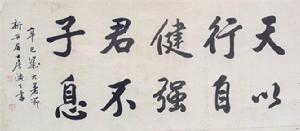 天行健君子
以自强不息
辛巳大暑
書